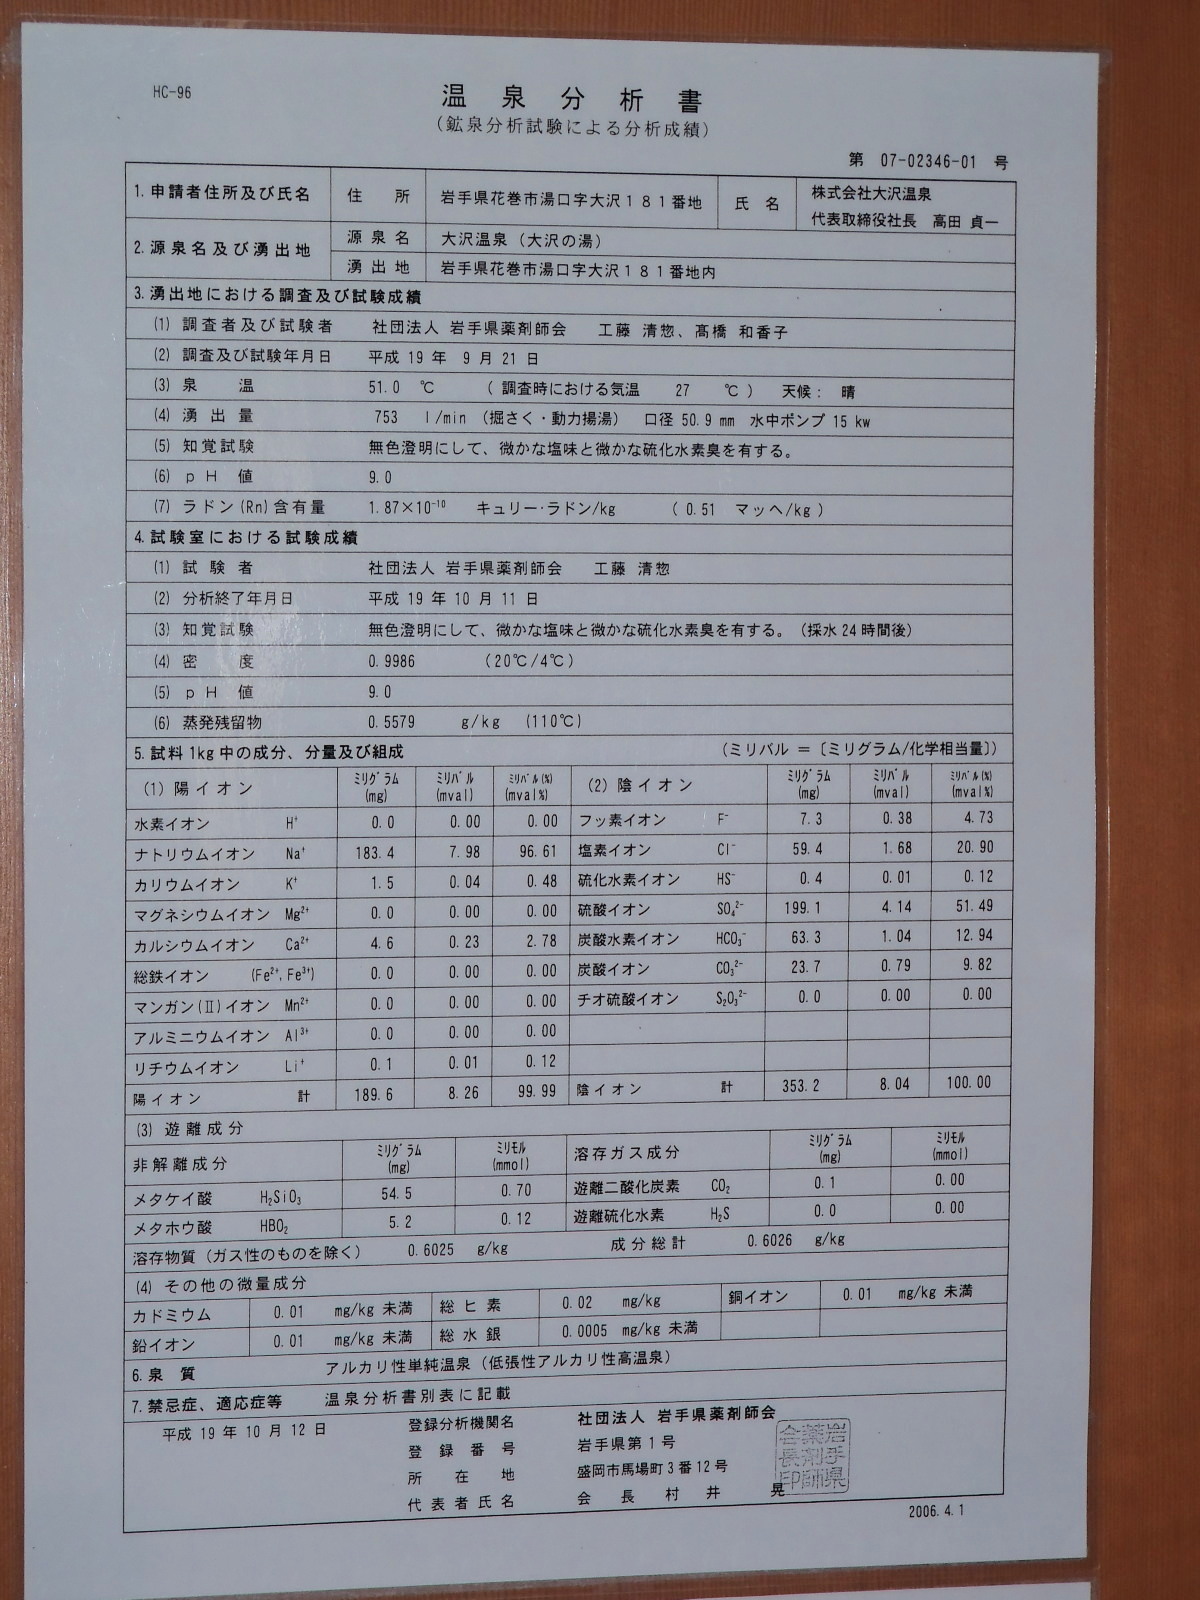 HC-96
温泉分析書
（鉱泉分析試験による分析成績）
第 07-02346-01 号
1.申請者住所及び氏名 住所 岩手県花巻市湯口字大沢１８１番地 氏名 株式会社大沢温泉
代表取締役社長 高田 貞一
2.源泉名及び湧出地 源泉名 大沢温泉（大沢の湯）
湧出地 岩手県花巻市湯口字大沢１８１番地内
3.湧出地における調査及び試験成績
(1) 調査者及び試験者 社団法人 岩手県薬剤師会 工藤 清惣、髙橋 和香子
(2) 調査及び試験年月日 平成 19 年 9 月 21 日
(3) 泉温 51.0 ℃ （調査時における気温 27 ℃） 天候： 晴
(4) 湧出量 753 l/min （掘さく・動力揚湯） 口径 50.9 mm 水中ポンプ 15 kw
(5) 知覚試験 無色澄明にして、微かな塩味と微かな硫化水素臭を有する。
(6) ｐＨ値 9.0
(7) ラドン(Rn)含有量 1.87×10⁻¹⁰ キュリー･ラドン/kg （0.51 マッヘ/kg）
4.試験室における試験成績
(1) 試験者 社団法人 岩手県薬剤師会 工藤 清惣
(2) 分析終了年月日 平成 19 年 10 月 11 日
(3) 知覚試験 無色澄明にして、微かな塩味と微かな硫化水素臭を有する。（採水 24 時間後）
(4) 密度 0.9986 （20℃/4℃）
(5) ｐＨ値 9.0
(6) 蒸発残留物 0.5579 g/kg (110℃)
5.試料1kg中の成分、分量及び組成 （ミリバル ＝〔ミリグラム/化学相当量〕）
(1) 陽イオン ﾐﾘｸﾞﾗﾑ (mg) ﾐﾘﾊﾞﾙ (mval) ﾐﾘﾊﾞﾙ(%) (mval%) (2) 陰イオン ﾐﾘｸﾞﾗﾑ (mg) ﾐﾘﾊﾞﾙ (mval) ﾐﾘﾊﾞﾙ(%) (mval%)
水素イオン H⁺ 0.0 0.00 0.00 フッ素イオン F⁻ 7.3 0.38 4.73
ナトリウムイオン Na⁺ 183.4 7.98 96.61 塩素イオン Cl⁻ 59.4 1.68 20.90
カリウムイオン K⁺ 1.5 0.04 0.48 硫化水素イオン HS⁻ 0.4 0.01 0.12
マグネシウムイオン Mg²⁺ 0.0 0.00 0.00 硫酸イオン SO₄²⁻ 199.1 4.14 51.49
カルシウムイオン Ca²⁺ 4.6 0.23 2.78 炭酸水素イオン HCO₃⁻ 63.3 1.04 12.94
総鉄イオン (Fe²⁺, Fe³⁺) 0.0 0.00 0.00 炭酸イオン CO₃²⁻ 23.7 0.79 9.82
マンガン(Ⅱ)イオン Mn²⁺ 0.0 0.00 0.00 チオ硫酸イオン S₂O₃²⁻ 0.0 0.00 0.00
アルミニウムイオン Al³⁺ 0.0 0.00 0.00
リチウムイオン Li⁺ 0.1 0.01 0.12
陽イオン計 189.6 8.26 99.99 陰イオン計 353.2 8.04 100.00
(3) 遊離成分
非解離成分 ﾐﾘｸﾞﾗﾑ (mg) ﾐﾘﾓﾙ (mmol) 溶存ガス成分 ﾐﾘｸﾞﾗﾑ (mg) ﾐﾘﾓﾙ (mmol)
メタケイ酸 H₂SiO₃ 54.5 0.70 遊離二酸化炭素 CO₂ 0.1 0.00
メタホウ酸 HBO₂ 5.2 0.12 遊離硫化水素 H₂S 0.0 0.00
溶存物質（ガス性のものを除く） 0.6025 g/kg 成分総計 0.6026 g/kg
(4) その他の微量成分
カドミウム 0.01 mg/kg 未満 総ヒ素 0.02 mg/kg 銅イオン 0.01 mg/kg 未満
鉛イオン 0.01 mg/kg 未満 総水銀 0.0005 mg/kg 未満
6.泉質 アルカリ性単純温泉（低張性アルカリ性高温泉）
7.禁忌症、適応症等 温泉分析書別表に記載
平成 19 年 10 月 12 日 登録分析機関名 社団法人 岩手県薬剤師会
登録番号 岩手県第１号
所在地 盛岡市馬場町３番12号
代表者氏名 会長 村井 晃
岩手県薬剤師会長印
2006.4.1